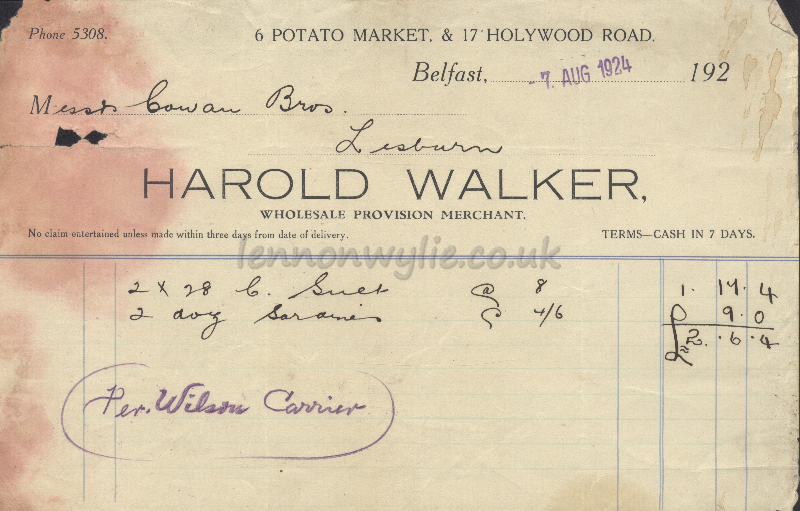 Phone 5308.
6 POTATO MARKET, & 17 HOLYWOOD ROAD.
Belfast, -7 AUG 1924 192
Messrs Cowan Bros.
Lisburn
HAROLD WALKER,
WHOLESALE PROVISION MERCHANT.
No claim entertained unless made within three days from date of delivery.
TERMS—CASH IN 7 DAYS.
lennonwylie.co.uk
2 x 28 C. Suet @ 8 1. 17. 4
2 doz Sardines @ 4/6 9. 0
2. 6. 4
Per. Wilson Carrier